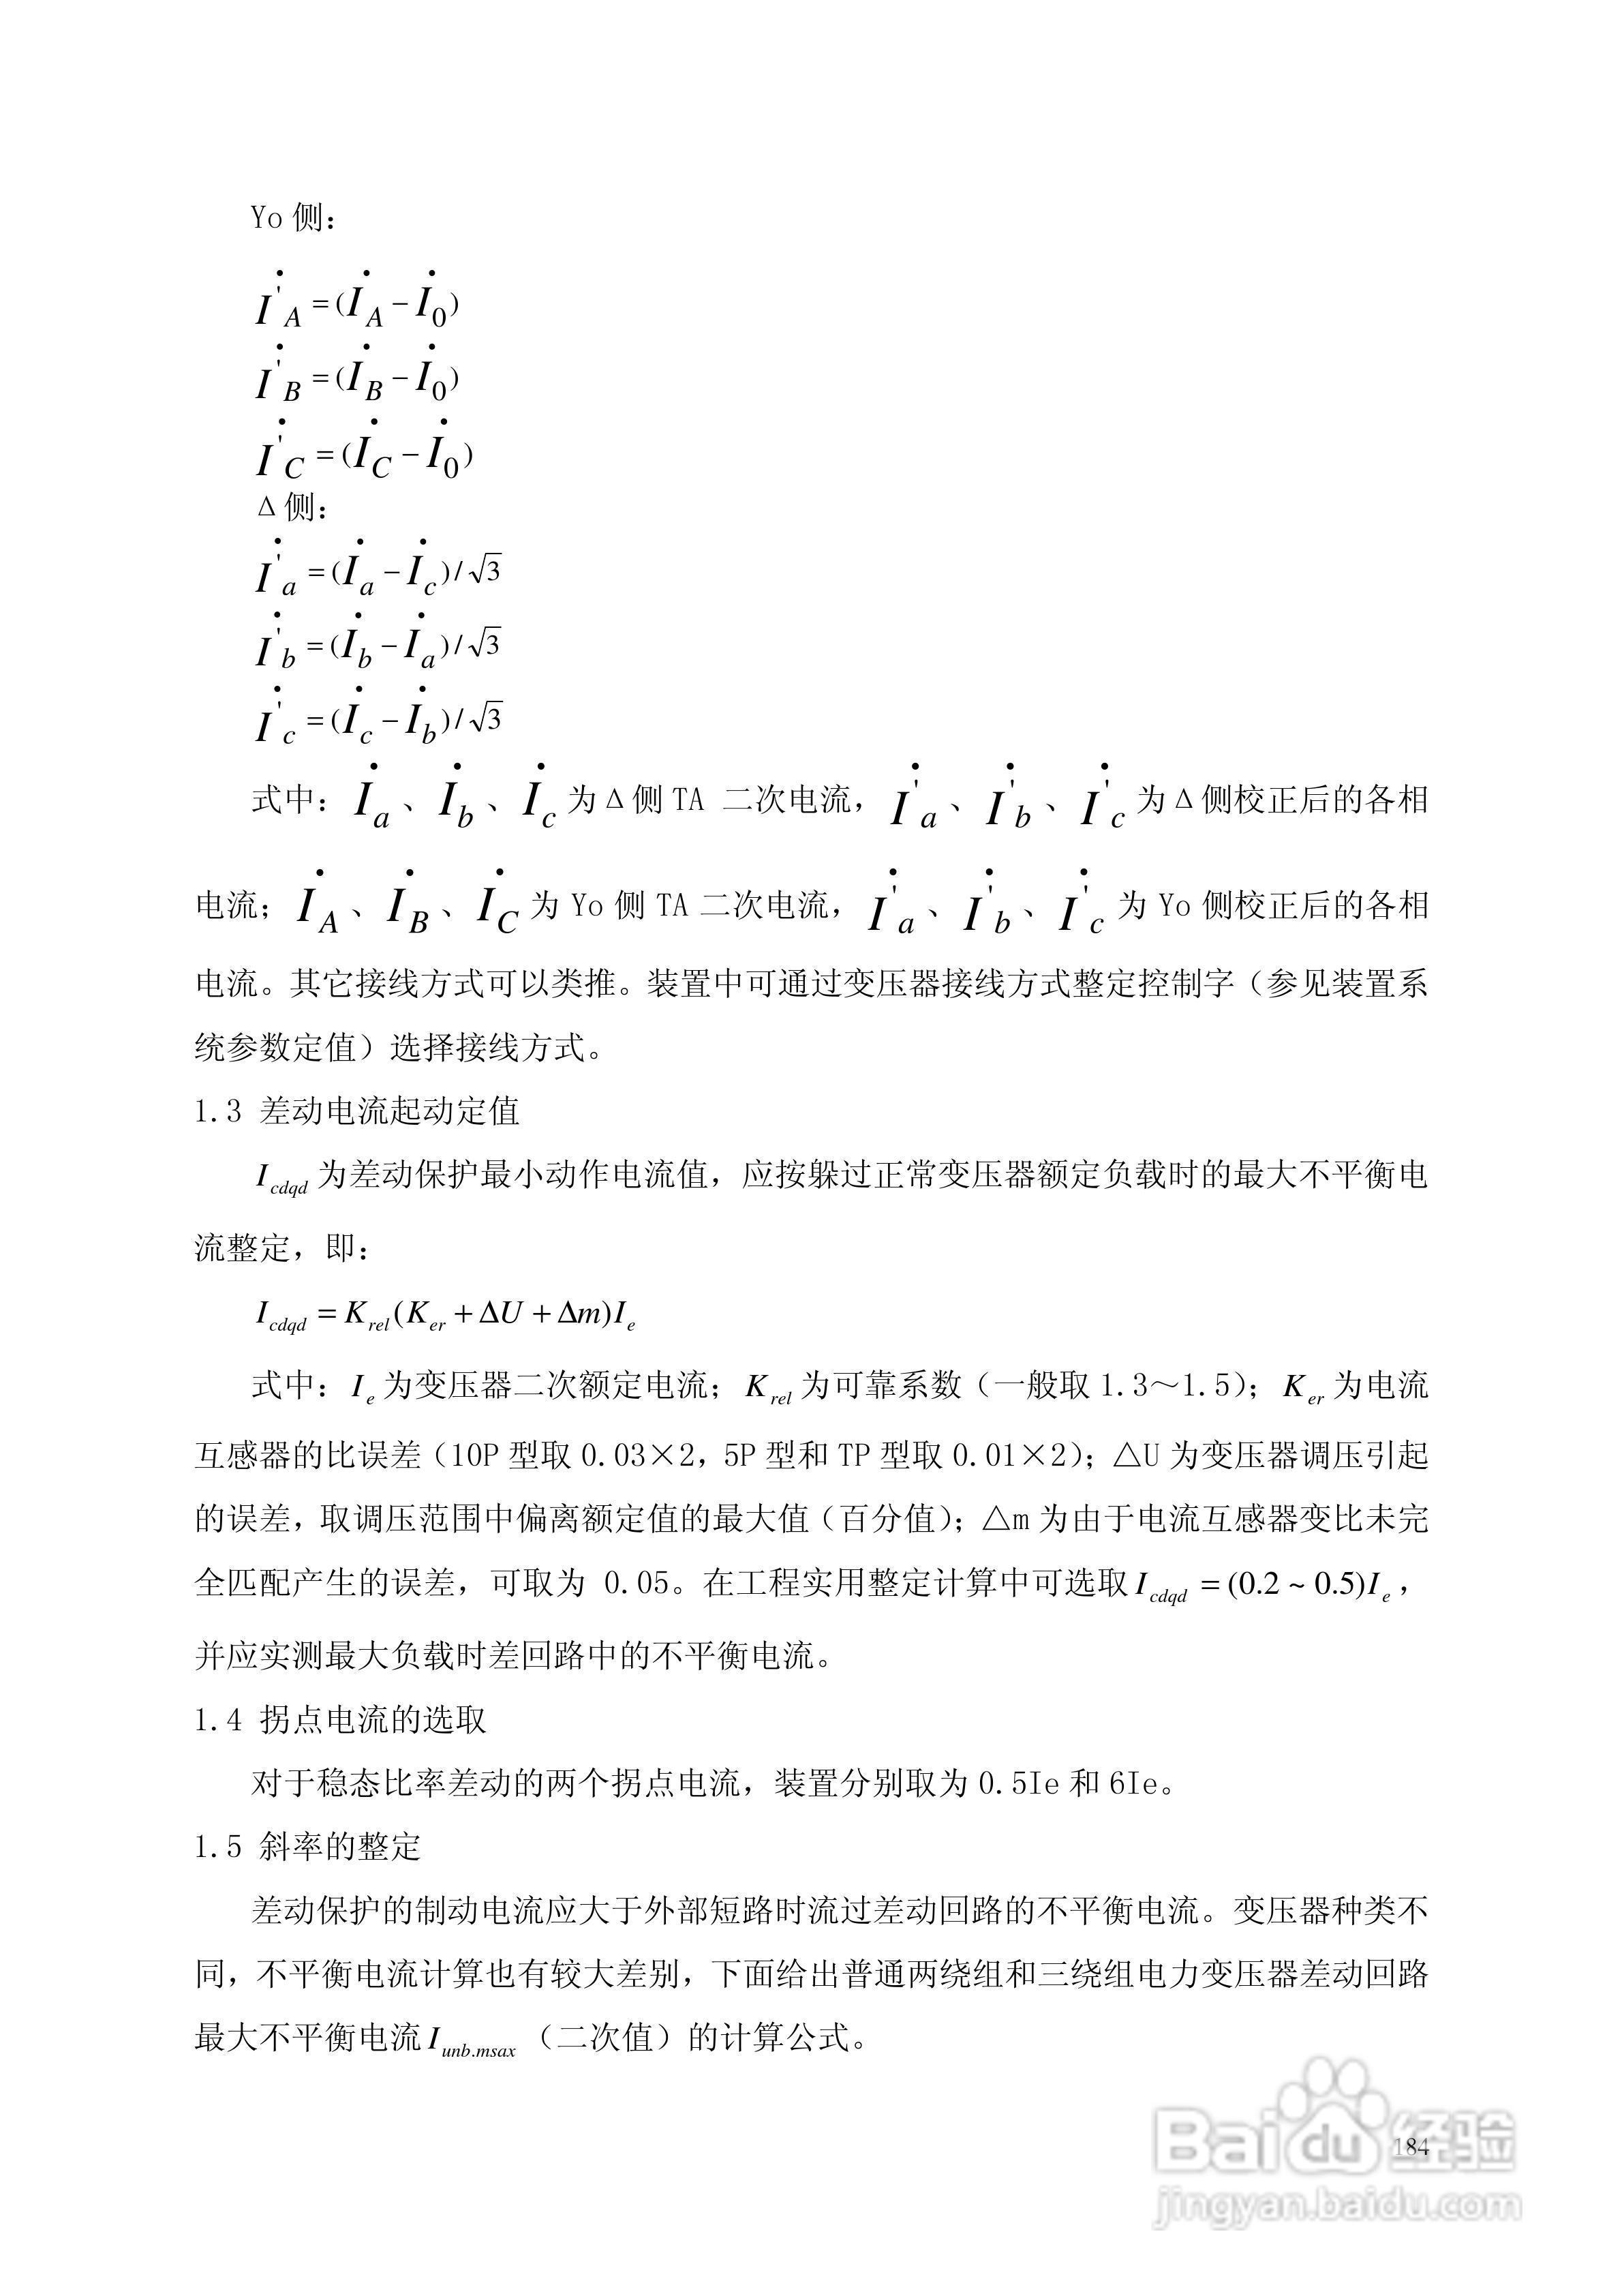 Yo 侧：
İ'A =(İA − İ0)
İ'B =(İB − İ0)
İ'C =(İC − İ0)
Δ侧：
İ'a =(İa − İc)/√3
İ'b =(İb − İa)/√3
İ'c =(İc − İb)/√3
式中：İa、İb、İc为Δ侧 TA 二次电流，İ'a、İ'b、İ'c为Δ侧校正后的各相
电流；İA、İB、İC为 Yo 侧 TA 二次电流，İ'a、İ'b、İ'c为 Yo 侧校正后的各相
电流。其它接线方式可以类推。装置中可通过变压器接线方式整定控制字（参见装置系
统参数定值）选择接线方式。
1.3 差动电流起动定值
Icdqd为差动保护最小动作电流值，应按躲过正常变压器额定负载时的最大不平衡电
流整定，即：
Icdqd = Krel(Ker + ΔU + Δm)Ie
式中：Ie为变压器二次额定电流；Krel为可靠系数（一般取 1.3～1.5）；Ker为电流
互感器的比误差（10P 型取 0.03×2，5P 型和 TP 型取 0.01×2）；△U 为变压器调压引起
的误差，取调压范围中偏离额定值的最大值（百分值）；△m 为由于电流互感器变比未完
全匹配产生的误差，可取为 0.05。在工程实用整定计算中可选取Icdqd = (0.2 ~ 0.5)Ie，
并应实测最大负载时差回路中的不平衡电流。
1.4 拐点电流的选取
对于稳态比率差动的两个拐点电流，装置分别取为 0.5Ie 和 6Ie。
1.5 斜率的整定
差动保护的制动电流应大于外部短路时流过差动回路的不平衡电流。变压器种类不
同，不平衡电流计算也有较大差别，下面给出普通两绕组和三绕组电力变压器差动回路
最大不平衡电流Iunb.msax（二次值）的计算公式。
184
Baidu 经验
jingyan.baidu.com